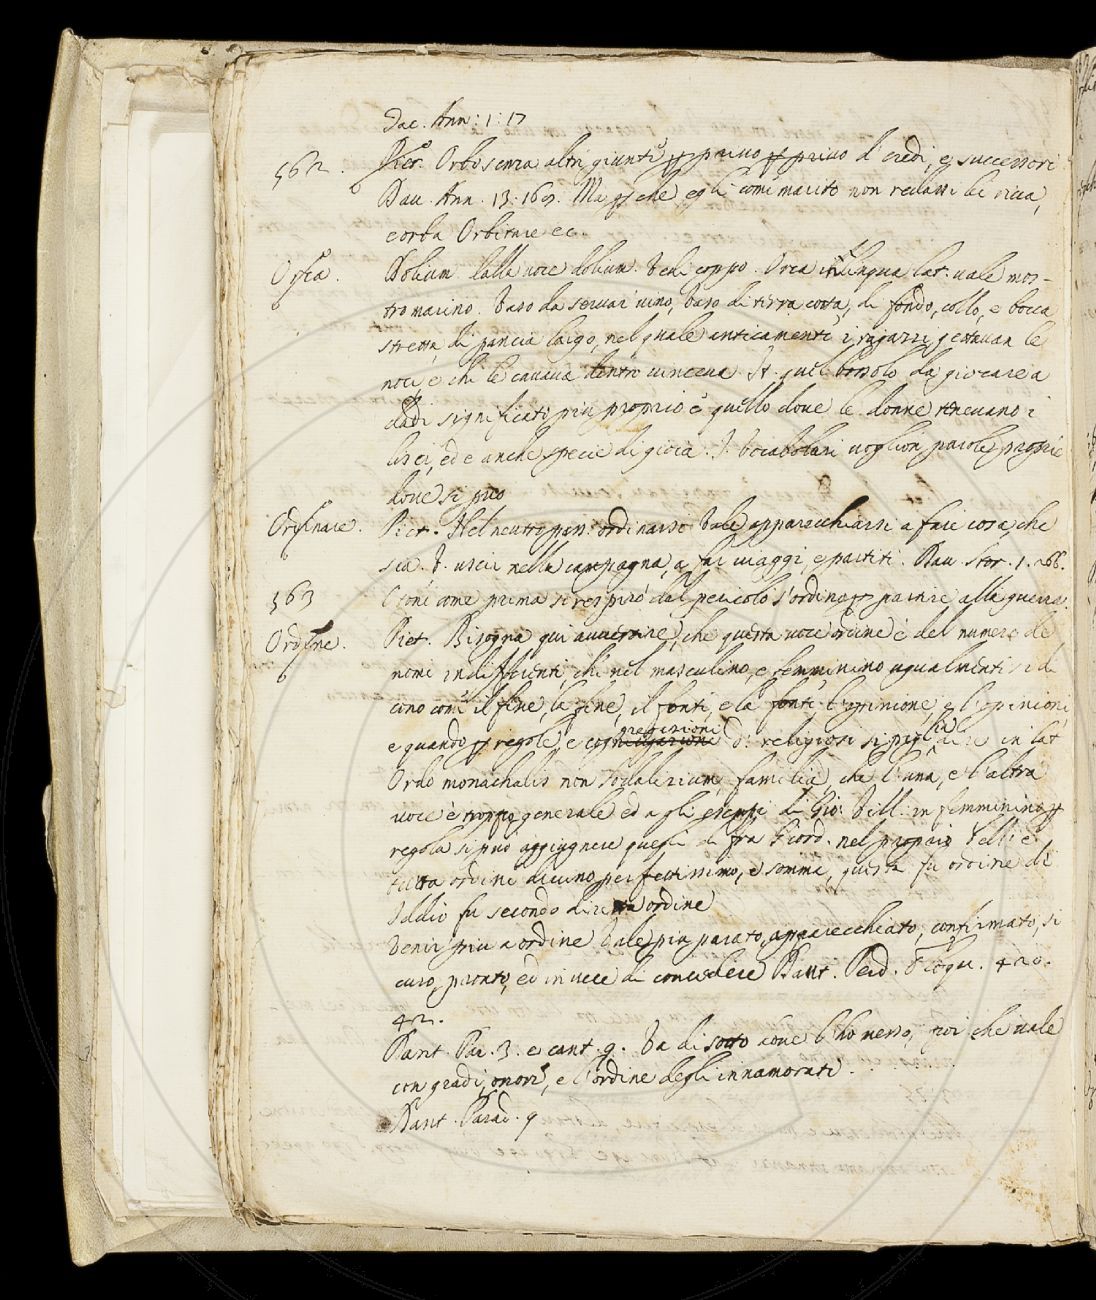 Tac. Ann. 1. 17
562. Piet. Orbo senza altri giunti p privo p privo d'eredi, e successori
Dav. Ann. 13. 169. Ma p che egli com' marito non redassi le ricca,
e orba Orbitare ec.
Orcia. Dolium dalla voce dolium. Vedi coppo. Orca in lingua lat. vale mos-
tro marino. Vaso da servar vino, vaso di terra cotta, di fondo, collo, e bocca
stretta, di pancia largo, nel quale anticamente i ragazzi gettavan le
noci, e chi le cavava dentro vinceva. It. quel bossolo da giocare a
dadi significato piu proprio è quello dove le donne tenevano i
lisci, ed è anche specie di gioia. I Vocabolari voglion parole proprie
dove si puo
Ordinare. Piet. Nel neutro pass. ordinarsi vale apparecchiarsi a fare cosa che
sia. V. uscir nella campagna, a far viaggi, e partiti. Dav. Stor. 1. 266.
563 Otoni come prima si respirò dal pericolo s'ordina p partire alla guerra.
Ordine. Piet. Bisogna qui avvertire, che questa voce ordine è del numero de
nomi indifferenti, che nel masculino, e femminino ugualmenti si di
cono com' il fine, la fine, il fonti, e la fonti l'opinione, e l'openioni
e quando p regole, e congregazioni di religiosi si piglia in lat
Ordo monachalis non Sodalitium, familia, che l'una, e l'altra
voce è troppo generale ed a gli esempi di Gio: Vill: in femminino p
regola si può aggiugnere quegli di fra Giord. nel proprio Vell. e
tutta ordini alcuno perfettissimo, e somma, questa fu ordine di
Iddio fu secondo diritta ordine
Venir piu a ordine vale piu parato, apparecchiato, confirmato, si
curo, pronto, ed in vece di concedere Dant. Ped. 420.
42.
Dant. Par. 3. e cant. 9. Va di sotto dove l'ho messo, poi che vale
con gradi, onori, e l'ordine degli innamorati.
Dant. Parad. 9